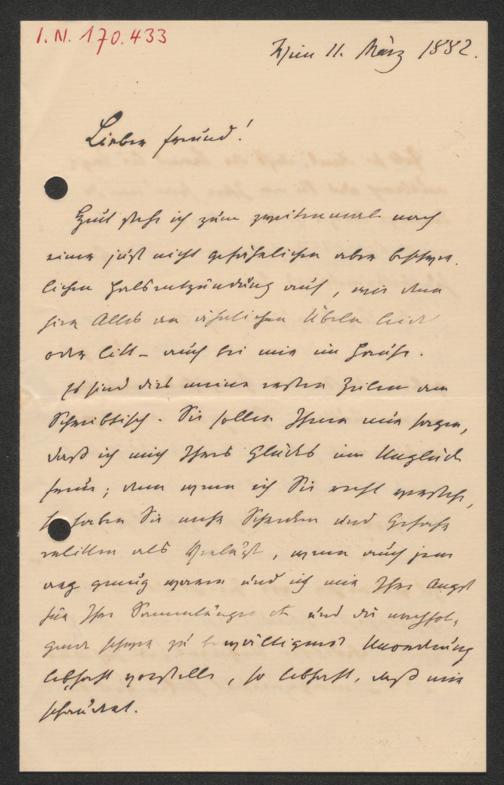 I.N. 170.433
Wien 11. März 1882.
Lieber Freund!
Heut stehe ich zum zweitenmale nach
einer just nicht gefährlichen aber beschwer-
lichen Halsentzündung auf, wie denn
hier Alles an ähnlichen Übeln leidet
oder litt – auch bei mir im Hause.
Es sind dies meine ersten Zeilen am
Schreibtisch. Sie sollen Ihnen nur sagen,
daß ich mich Ihres Glücks im Unglück
freue; denn wenn ich Sie recht verstehe,
so haben Sie mehr Schrecken und Gefahr
erlitten als Verlust, wenn auch jene
arg genug waren und ich mir Ihre Angst
für Ihre und die nachfol-
gende schwer zu bewältigende Unordnung
lebhaft vorstelle, so lebhaft, daß mir
schaudert.